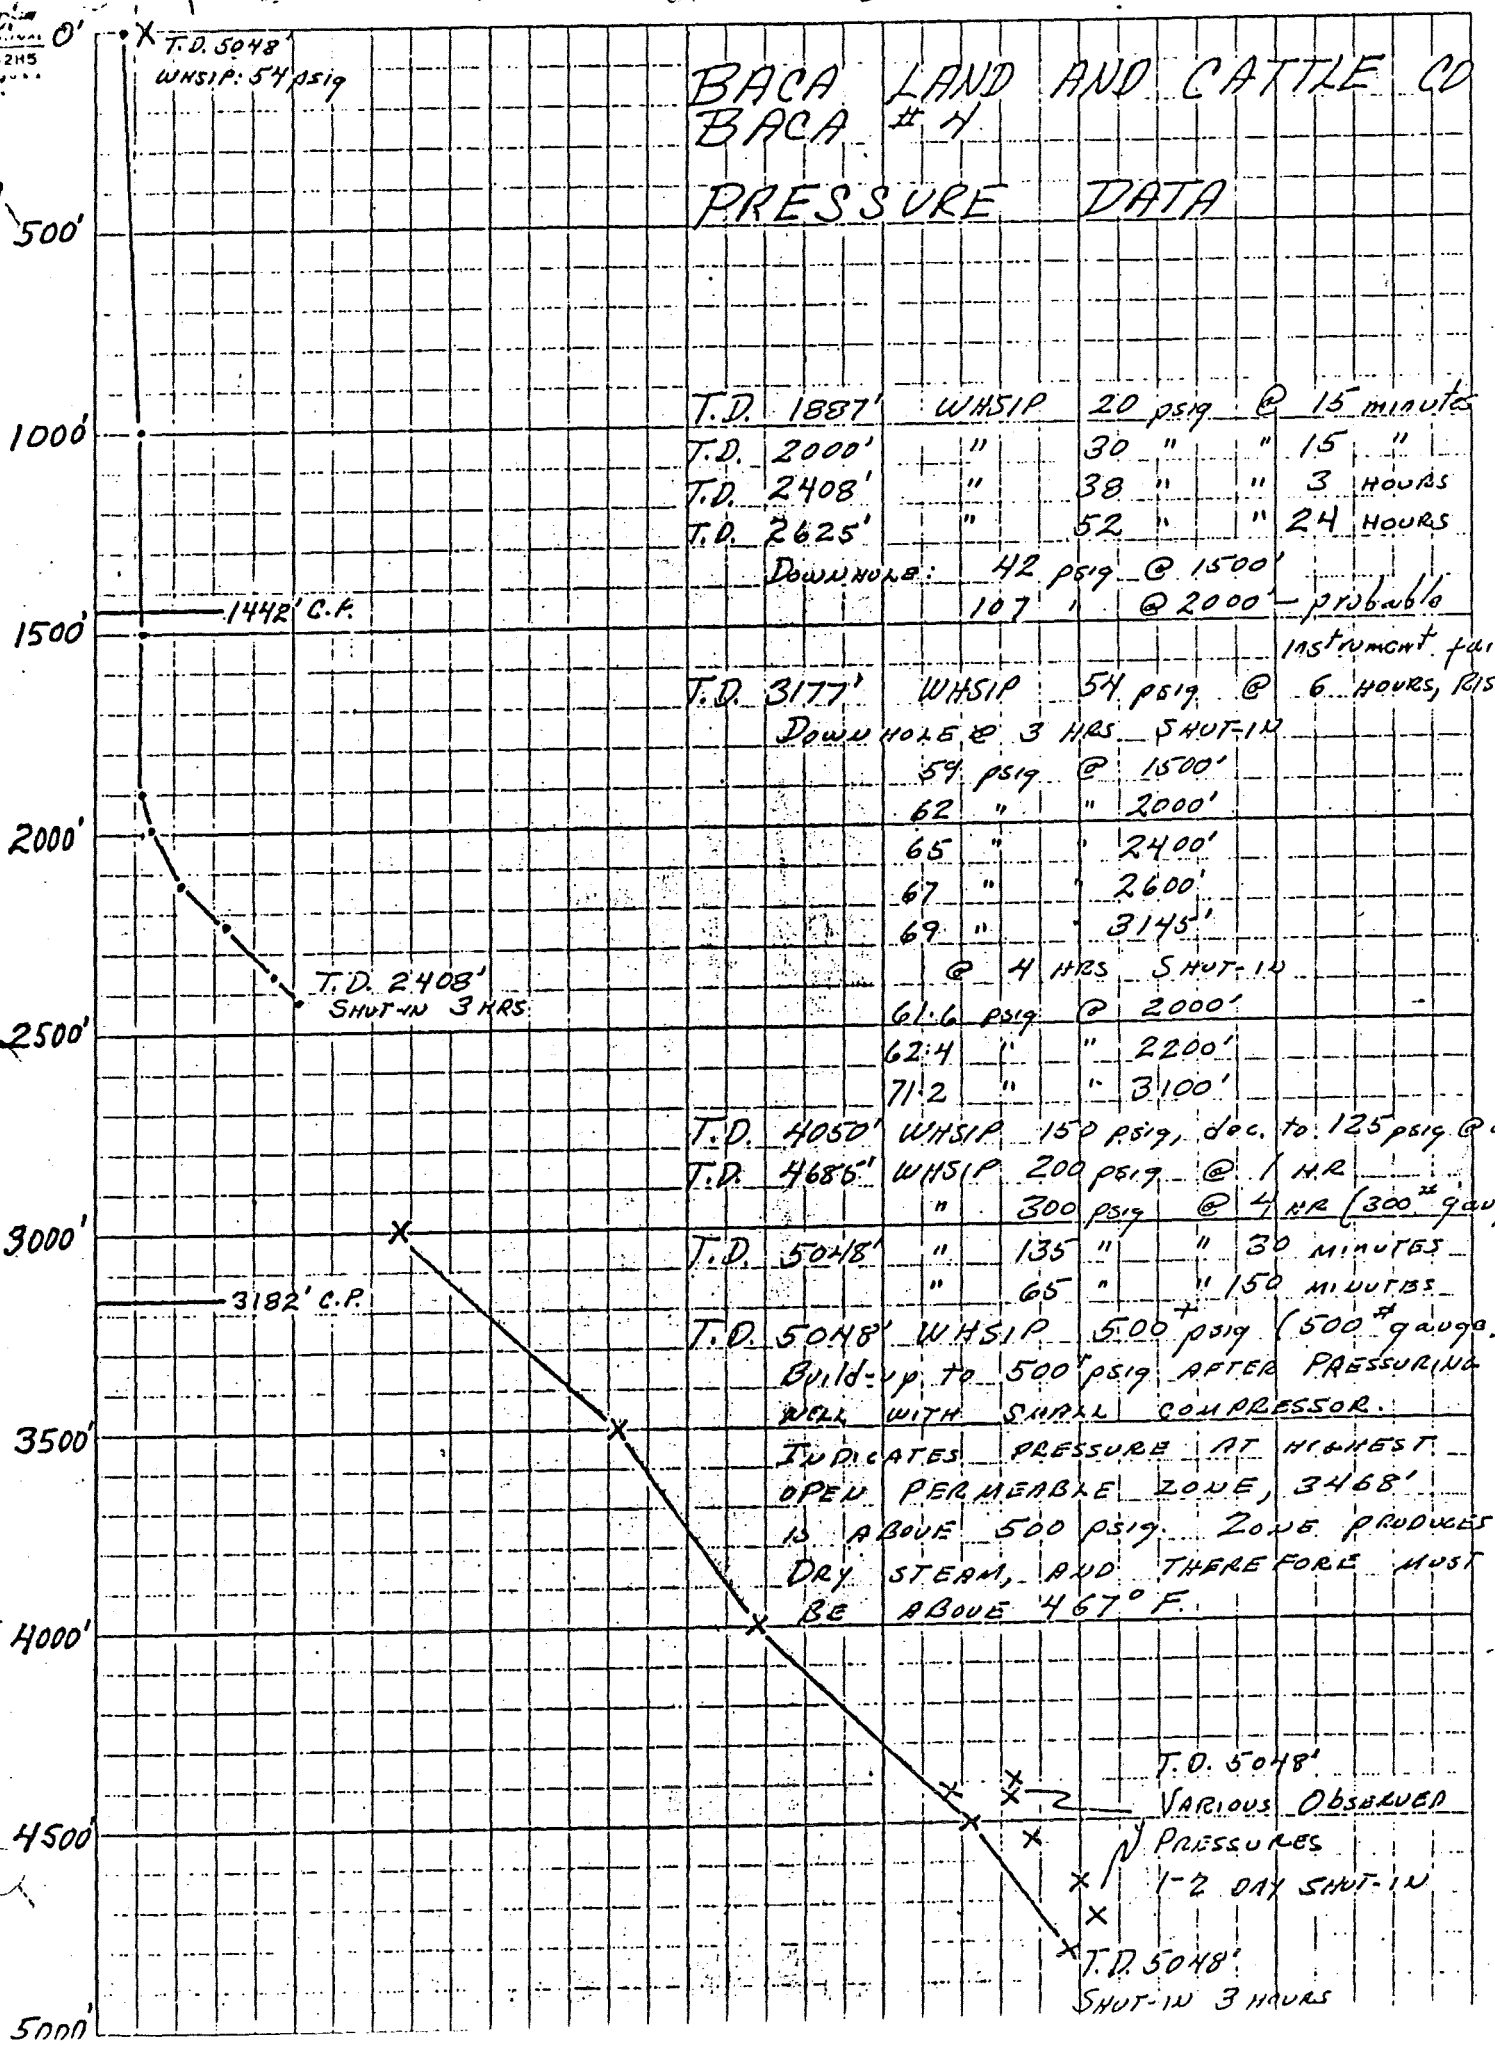 0'
T.D. 5048'
WHSIP: 54 psig
BACA LAND AND CATTLE CO
BACA # 4
PRESSURE DATA
500'
T.D. 1887' WHSIP 20 psig @ 15 minutes
1000'
T.D. 2000' " 30 " " 15 "
T.D. 2408' " 38 " " 3 HOURS
T.D. 2625' " 52 " " 24 HOURS
DOWNHOLE: 42 psig @ 1500'
107 " @ 2000' - probable
1442' C.P.
1500'
instrument
T.D. 3177' WHSIP 54 psig @ 6 HOURS,
DOWNHOLE @ 3 HRS SHUT-IN
59 psig @ 1500'
62 " " 2000'
2000'
65 " " 2400'
67 " " 2600'
69 " " 3145'
@ 4 HRS SHUT-IN
T.D. 2408'
SHUT-IN 3 HRS
61.6 psig @ 2000'
2500'
62.4 " " 2200'
71.2 " " 3100'
T.D. 4050' WHSIP 150 psig, dec. to 125 psig @
T.D. 4685' WHSIP 200 psig @ 1 HR
" 300 psig @ 4 HR (300#
3000'
T.D. 5048' " 135 " " 30 MINUTES
" 65 " " 150 MINUTES
3182' C.P.
T.D. 5048' WHSIP 500+ psig (500# gauge.
Build-up to 500+ psig AFTER PRESSURING
WELL WITH SMALL COMPRESSOR.
3500'
INDICATES PRESSURE AT HIGHEST
OPEN PERMEABLE ZONE, 3468'
IS ABOVE 500 psig. ZONE PRODUCES
DRY STEAM, AND THEREFORE MUST
BE ABOVE 467° F.
4000'
T.D. 5048'
VARIOUS OBSERVED
4500'
PRESSURES
1-2 DAY SHUT-IN
T.D. 5048'
SHUT-IN 3 HOURS
5000'